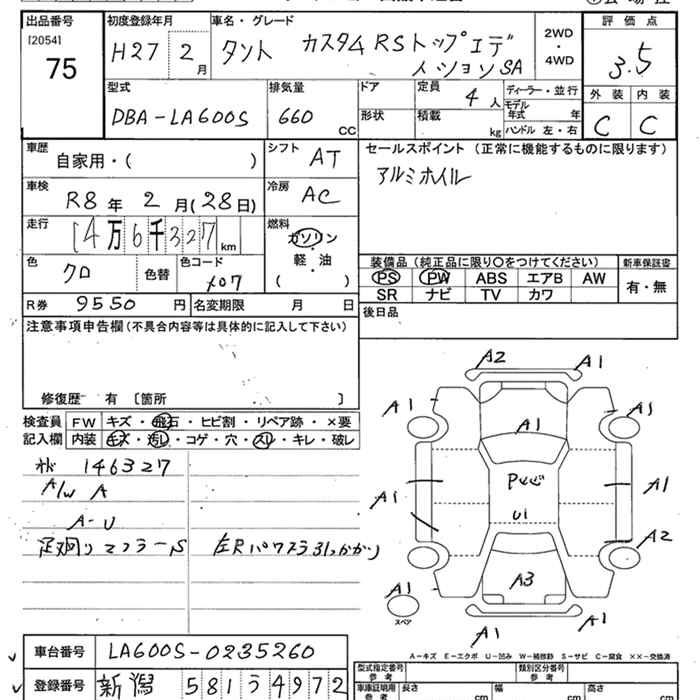 出品番号 初度登録年月 車名・グレード 評価点
[2054] 75
H27 2月 タント カスタムRSトップエディションSA
2WD・4WD
3.5
型式 排気量 ドア 定員 4人 ディーラー・並行
DBA-LA600S 660CC 形状 積載 kg モデル年式 年
ハンドル 左・右
外装 内装
C C
車歴 自家用・( ) シフト AT
セールスポイント (正常に機能するものに限ります)
アルミホイル
車検 R8年2月(28日) 冷房 AC
走行 14万6千327km 燃料 ガソリン・軽油 ( )
色 クロ 色替 色コード X07
装備品(純正品に限り○をつけてください) 新車保証書
PS PW ABS エアB AW 有・無
SR ナビ TV カワ
R券 9550円 名変期限 月 日
後日品
注意事項申告欄(不具合内容等は具体的に記入して下さい)
修復歴 有 [箇所 ]
検査員記入欄
FW キズ・飛石・ヒビ割・リペア跡・×要
内装 キズ・汚し・コゲ・穴・スリ・キレ・破レ
146327
A/W A
A-U
足廻り マフラーS 左Rパワスラ引っかかり
A2 A1
A1 A1 A1
A1 A1
U1
A2
A3
A1 スペア
A1 A1
A-キズ E-エクボ U-凹み W-補修跡 S-サビ C-腐食 ××-交換済
車台番号 LA600S-0235260
登録番号 新潟 581う4972
型式指定番号 参考 類別区分番号 参考
車庫証明用 参考 長さ cm 幅 cm 高さ cm